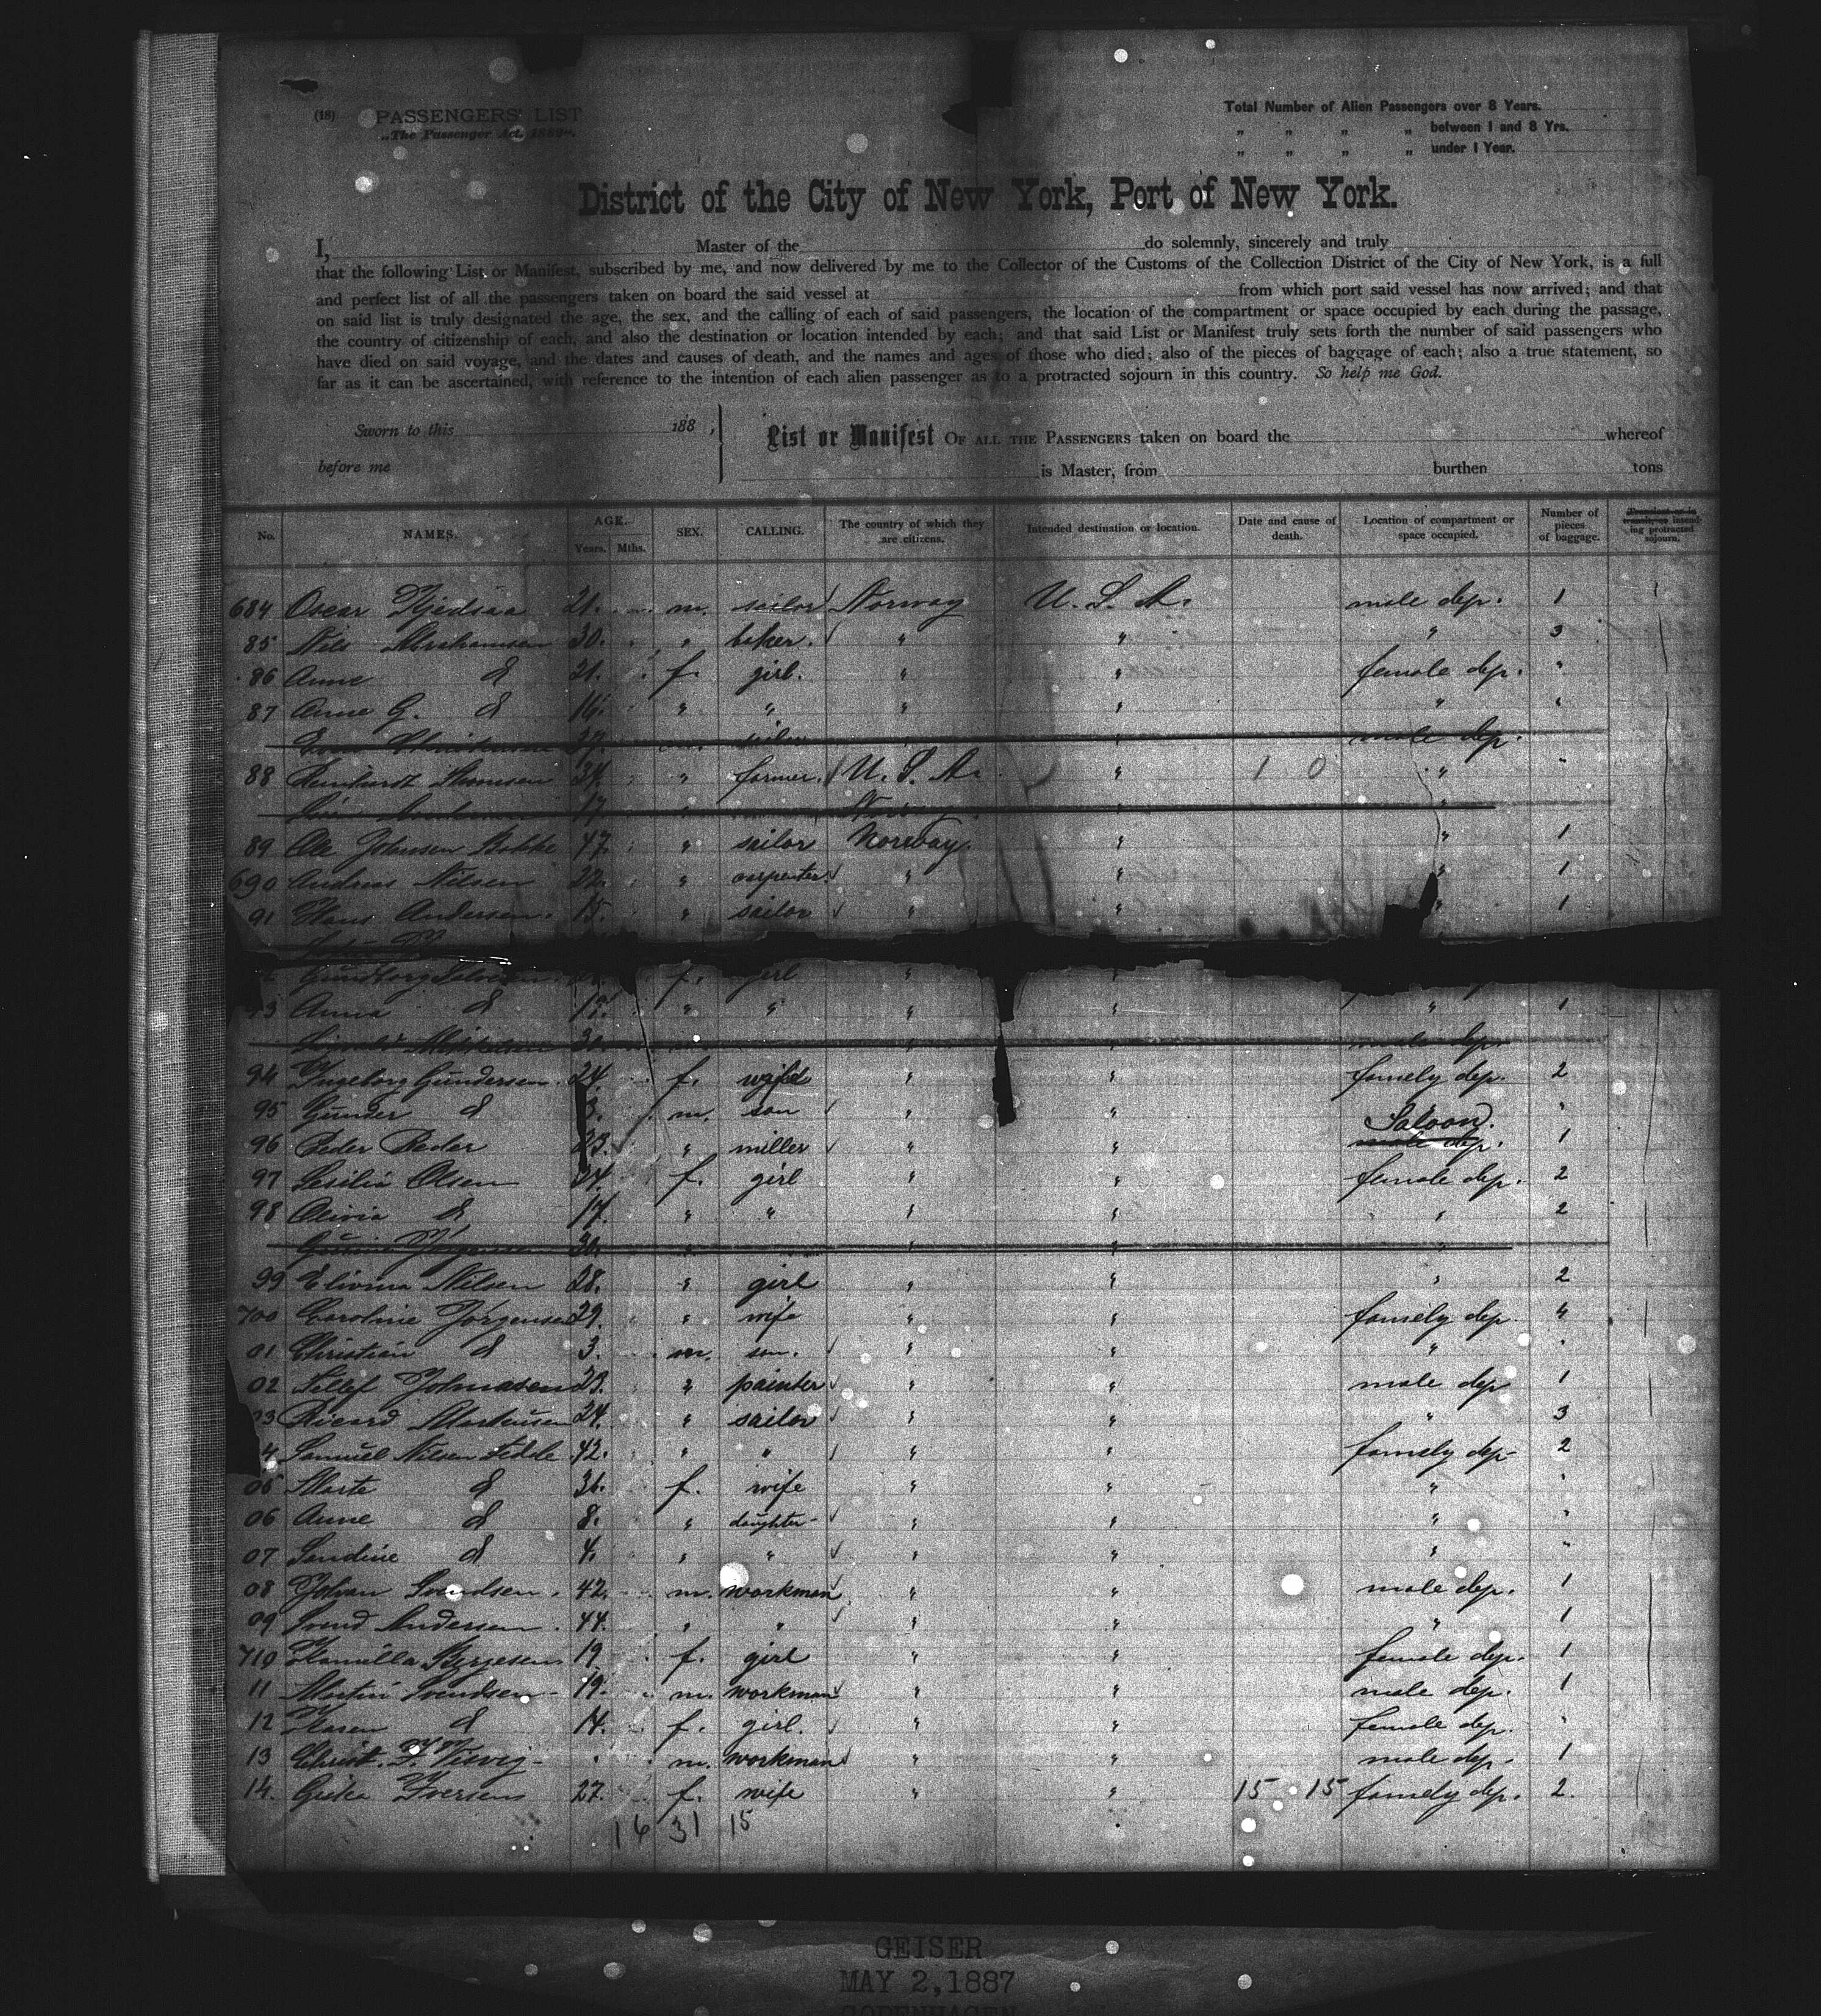 (18) PASSENGERS' LIST
„The Passenger Act, 1882“.
Total Number of Alien Passengers over 8 Years.
„ „ „ „ between 1 and 8 Yrs.
„ „ „ „ under 1 Year.
District of the City of New York, Port of New York.
I, Master of the do solemnly, sincerely and truly
that the following List or Manifest, subscribed by me, and now delivered by me to the Collector of the Customs of the Collection District of the City of New York, is a full
and perfect list of all the passengers taken on board the said vessel at from which port said vessel has now arrived; and that
on said list is truly designated the age, the sex, and the calling of each of said passengers, the location of the compartment or space occupied by each during the passage,
the country of citizenship of each, and also the destination or location intended by each; and that said List or Manifest truly sets forth the number of said passengers who
have died on said voyage, and the dates and causes of death, and the names and ages of those who died; also of the pieces of baggage of each; also a true statement, so
far as it can be ascertained, with reference to the intention of each alien passenger as to a protracted sojourn in this country. So help me God.
Sworn to this 188 ,
before me
List or Manifest OF ALL THE PASSENGERS taken on board the whereof
is Master, from burthen tons
No. NAMES. AGE. Years. Mths. SEX. CALLING. The country of which they are citizens. Intended destination or location. Date and cause of death. Location of compartment or space occupied. Number of pieces of baggage. intending protracted sojourn.
684 Oscar 21. m. sailor Norway U. S. A. male dep. 1
85 Nils Abrahamsen 30. " baker. " " " 3
86 Anne d 21. f. girl. " " female dep. "
87 Anne G. d 16. " " " " " "
27. m. sailor " " male dep.
88 Reinhardt Thomsen 34. " farmer. U. S. A. " 1 0 " "
17 " Norway " "
89 Ole Johnsen Bakke 47. " sailor Norway " " 1
690 Andreas Nilsen 22. " carpenter " " " 1
91 Hans Andersen. 15. " sailor " " " 1
Gundborg f. girl " "
93 Anna d " " " " " 1
" " male dep.
94 Ingeborg Gundersen. 24. f. wife " " famely dep. 2
95 Gunder d 3. m. son " " "
Saloon.
96 Peder Reder 23. " miller " " male dep. 1
97 Sesilie Olsen 24. f. girl " " female dep. 2
98 Olivia d 17. " " " " " 2
Jörgensen 36. " " " "
99 Elivina Nilsen 28. " girl " " " 2
700 Caroline Jörgensen 29. " wife " " famely dep. 4
01 Christian d 3. m. son. " " " "
02 Tellef 23. " painter " " male dep 1
03 Ricard Martinsen 24. " sailor " " " 3
4 Samuel Nilsen 42. " " " " famely dep. 2
05 Marte d 36. f. wife " " " "
06 Anne d 8. " daughter " " " "
07 d 4. " " " " " "
08 Johan Svendsen. 42. m. workman " " male dep. 1
09 Svend Andersen. 44. " " " " " 1
710 19 f. girl " " female dep. 1
11 Martin Svendsen 19. m. workman " " male dep. 1
12 Karen d 14. f. girl. " " female dep. "
13 m. workman " " male dep. 1
14. Iversen 27. f. wife " " 15 15 famely dep. 2.
16 31 15
GEISER
MAY 2, 1887
COPENHAGEN